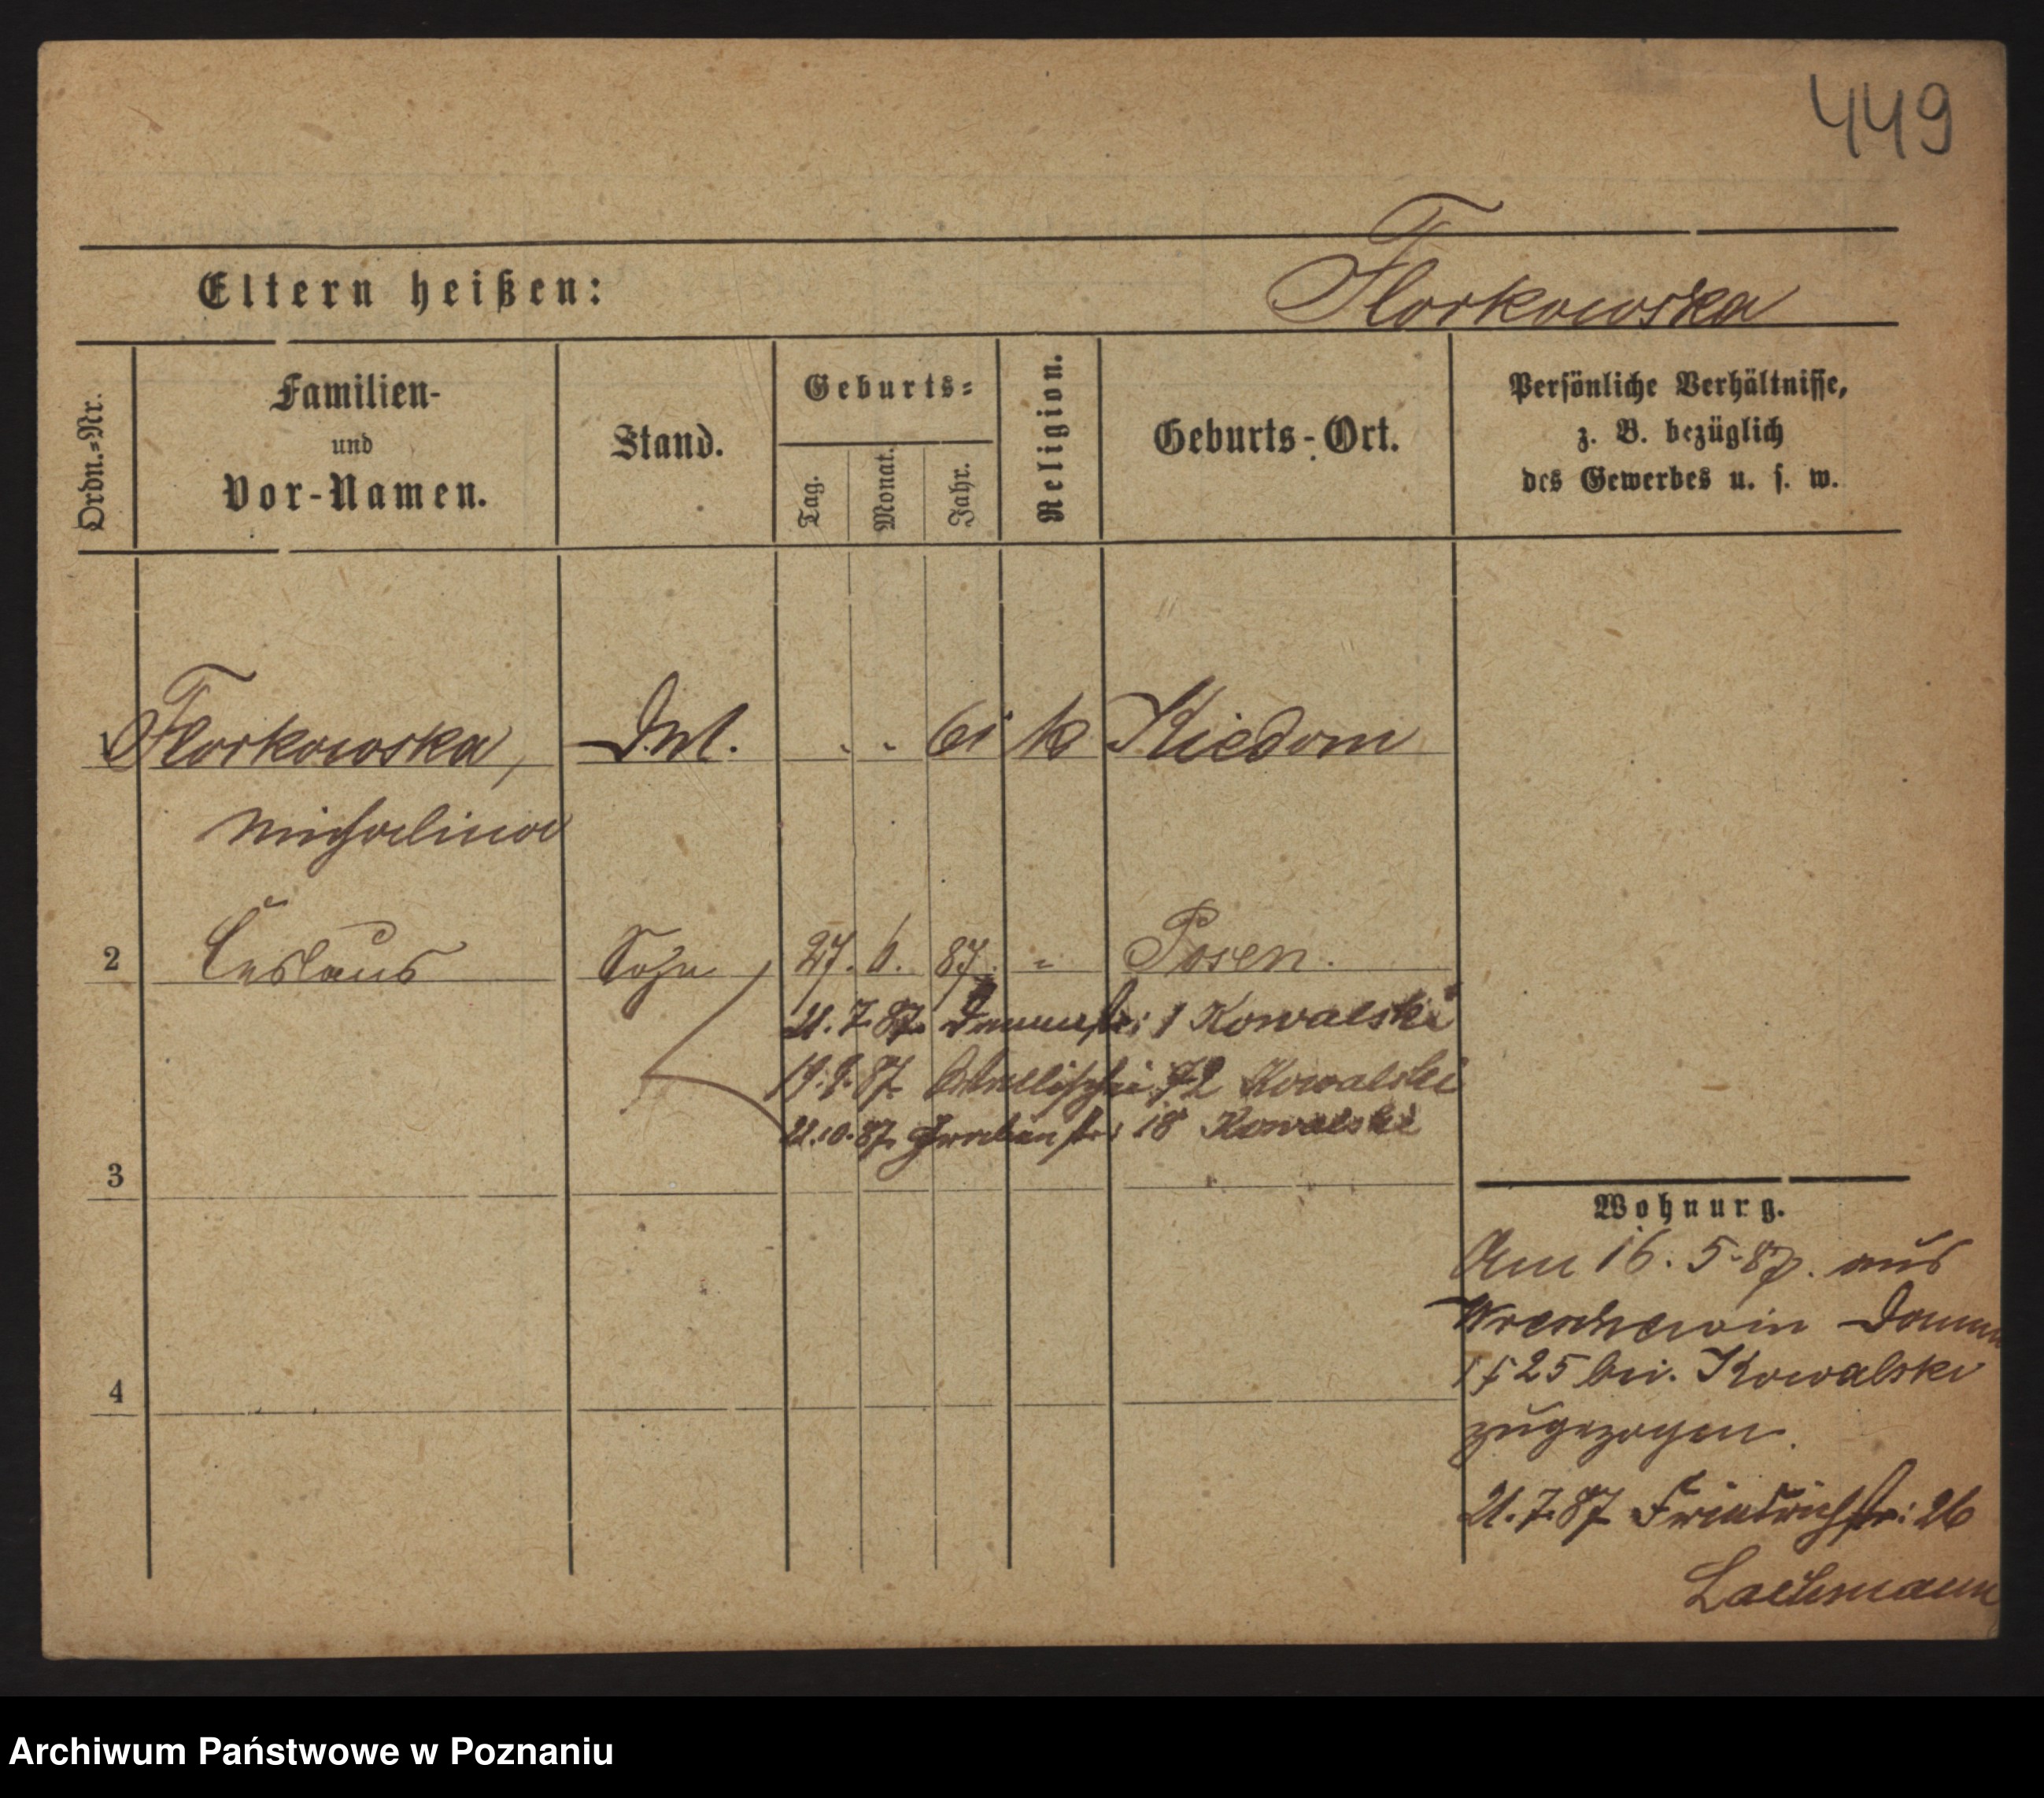 449
Eltern heißen:
Florkowska
Ordn.=Nr.
Familien-
und
Vor-Namen.
Stand.
Geburts=
Tag.
Monat.
Jahr.
Religion.
Geburts-Ort.
Persönliche Verhältnisse,
z. B. bezüglich
des Gewerbes u. s. w.
1 Florkowska, 61 k
Michalina
2 Ceslaus Sohn 27. 6. 87. " Posen.
21.7.87. Dammstr: 1 Kowalski
19.9.87. 72 Kowalski
21.10.87. 18 Kowalski
3
Wohnurg.
Am 16. 5. 87. aus
25 bei Kowalski
zugezogen.
21.7.87 Friedrichstr: 26
Lachmann
4
Archiwum Państwowe w Poznaniu